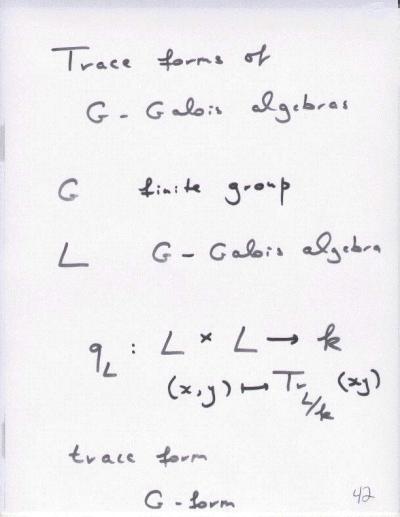 Trace forms of
G - Galois algebras
G finite group
L G - Galois algebra
q_L : L × L → k
(x,y) ↦ Tr_{L/k} (xy)
trace form
G - form
42